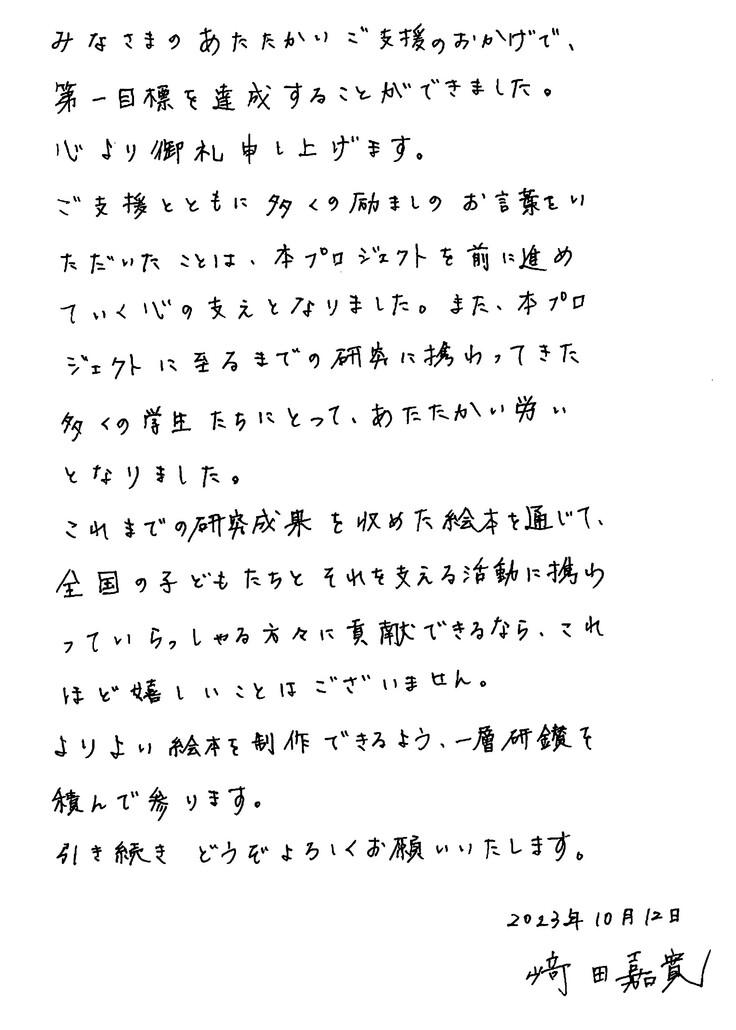 みなさまのあたたかいご支援のおかげで、
第一目標を達成することができました。
心より御礼申し上げます。
ご支援とともに多くの励ましのお言葉をい
ただいたことは、本プロジェクトを前に進め
ていく心の支えとなりました。また、本プロ
ジェクトに至るまでの研究に携わってきた
多くの学生たちにとって、あたたかい労い
となりました。
これまでの研究成果を収めた絵本を通じて、
全国の子どもたちとそれを支える活動に携わ
っていらっしゃる方々に貢献できるなら、これ
ほど嬉しいことはございません。
よりよい絵本を制作できるよう、一層研鑚を
積んで参ります。
引き続きどうぞよろしくお願いいたします。
2023年10月12日
﨑田嘉寛